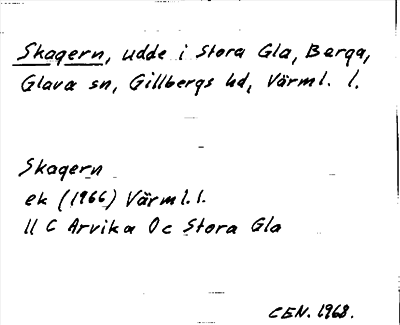 Skagern, udde i Stora Gla, Berga,
Glava sn, Gillbergs hd, Värml. l.
Skagern
ek (1966) Värml. l.
11 C Arvika 0c Stora Gla
CEN. 1968.